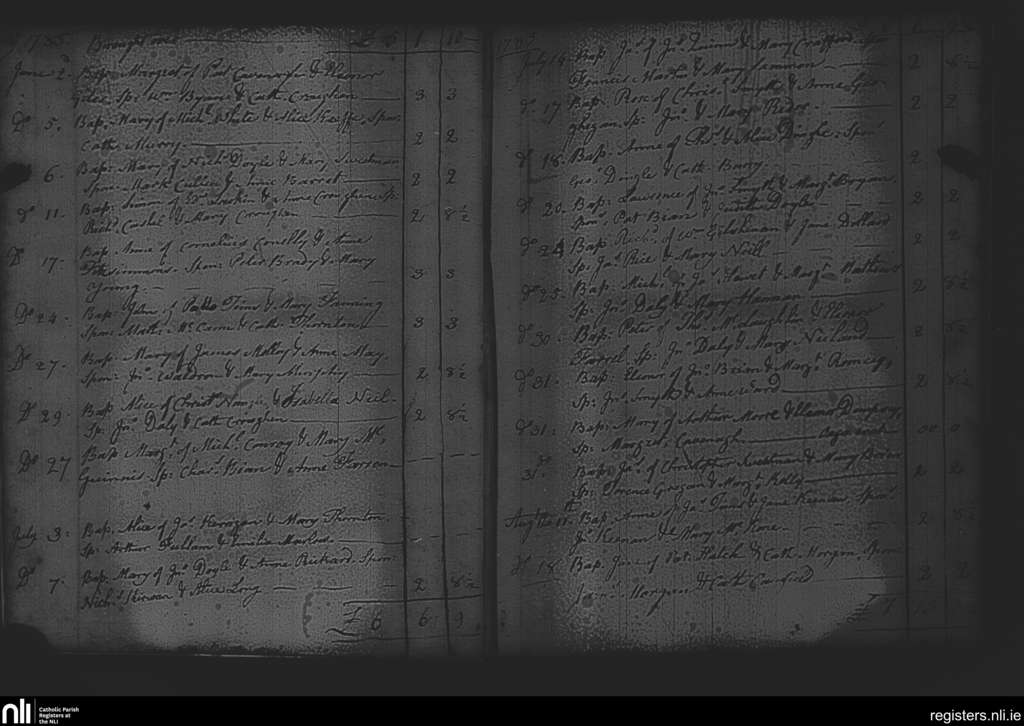 1785 Brought over £ 5 1 10
June 2. Bap: Margret of Pat Cavenagh & Eleanor
Sp: Wm Byrne & Cath: Croughan 3 3
Do 5. Bap: Mary of Michl White & Alice Keeffe, Spon:
Cath: Murry 2 2
6. Bap: Mary of Nichs Doyle & Mary Sweetman
Spon: Mark Cullen & Anne Barret 2 2
do 11. Bap: of & Anne Sp:
Richd Cashel & Mary Croughan 2 8½
Do 17. Bap: Anne of Cornelius Conolly & Anne
Fitzsimmons. Spon: Peter Brady & Mary
Young 3 3
Do 24. Bap: of Tims & Mary Fanning
Spon: Mathw Mc Cann & Cath: Thornton 3 3
Do 27. Bap: Mary of James Molloy & Anne May.
Spon: Jno Waldron & Mary Murphy 2 8½
Do 29. Bap: Alice of Christr Nangle & Isabella Neil.
Sp: Jno Daly & Cath Croughan 2 8½
Do 27 Bap: Margt of Michl Conroy & Mary Mc,
Guinnis Sp: Chas Brian & Anne
July 3. Bap: Alice of Jas Kerogan & Mary Thornton.
Sp: Arthur Dullam & Emilia
Do 7. Bap: Mary of Jno Doyle & Anne Rickard. Spon:
Nichs Kirwan & Alice Long 2 8½
£ 6 6 9
1785
July 14 Bap: Jno of Jno Quinn & Mary Crafford Sp:
Francis Martin & Mary Lemmon 2 8½
do 17 Bap: Rose of Chris: Smyth & Anne Geo-
ghegan Sp: Jno & Mary 2 2
do 18. Bap: Anne of Thos & Alice Dingle: Spon:
Geo: Dingle & Cath: Burry 2
do 20. Bap: Lawrence of Jno Smyth & Margt Bryan,
Spon: Pat Brian & Doyle 2 2
do 24 Bap: Richd of Wm & Jane Dollard
Sp: Jas Rice & Mary Neill 2 2
do 25. Bap: Michl of Jas & Margt Mathews
Sp: Jno Daly & Mary Hannan 2 8½
do 30. Bap: Peter of Thos Mclaughlin & Elenor
Farrel, Sp: Jno Daly & Mary 2 8½
do 31. Bap: Elenor of Jno Brien & Margt
Sp: Jno Smyth & Anne Ward 2 8½
do 31. Bap: Mary of Arthur Moore & Eleanor Dempsey,
Sp: Margret Cavenagh 00 0
31 do Bap: Jas of Christopher Sweetman & Mary
Sp: Terence Grogan & Margt Kelly 2 2
Augst 11th Bap: Anne of Jas & Jane Keenan Spon:
Jas Keenan & Mary Mc 2 8½
do 18. Bap: Jane of Pat: Hatch & Cath: Morgan, Spon:
James Morgan & Cath: Canfield 2 2
nli
Catholic Parish
Registers at
the NLI
registers.nli.ie